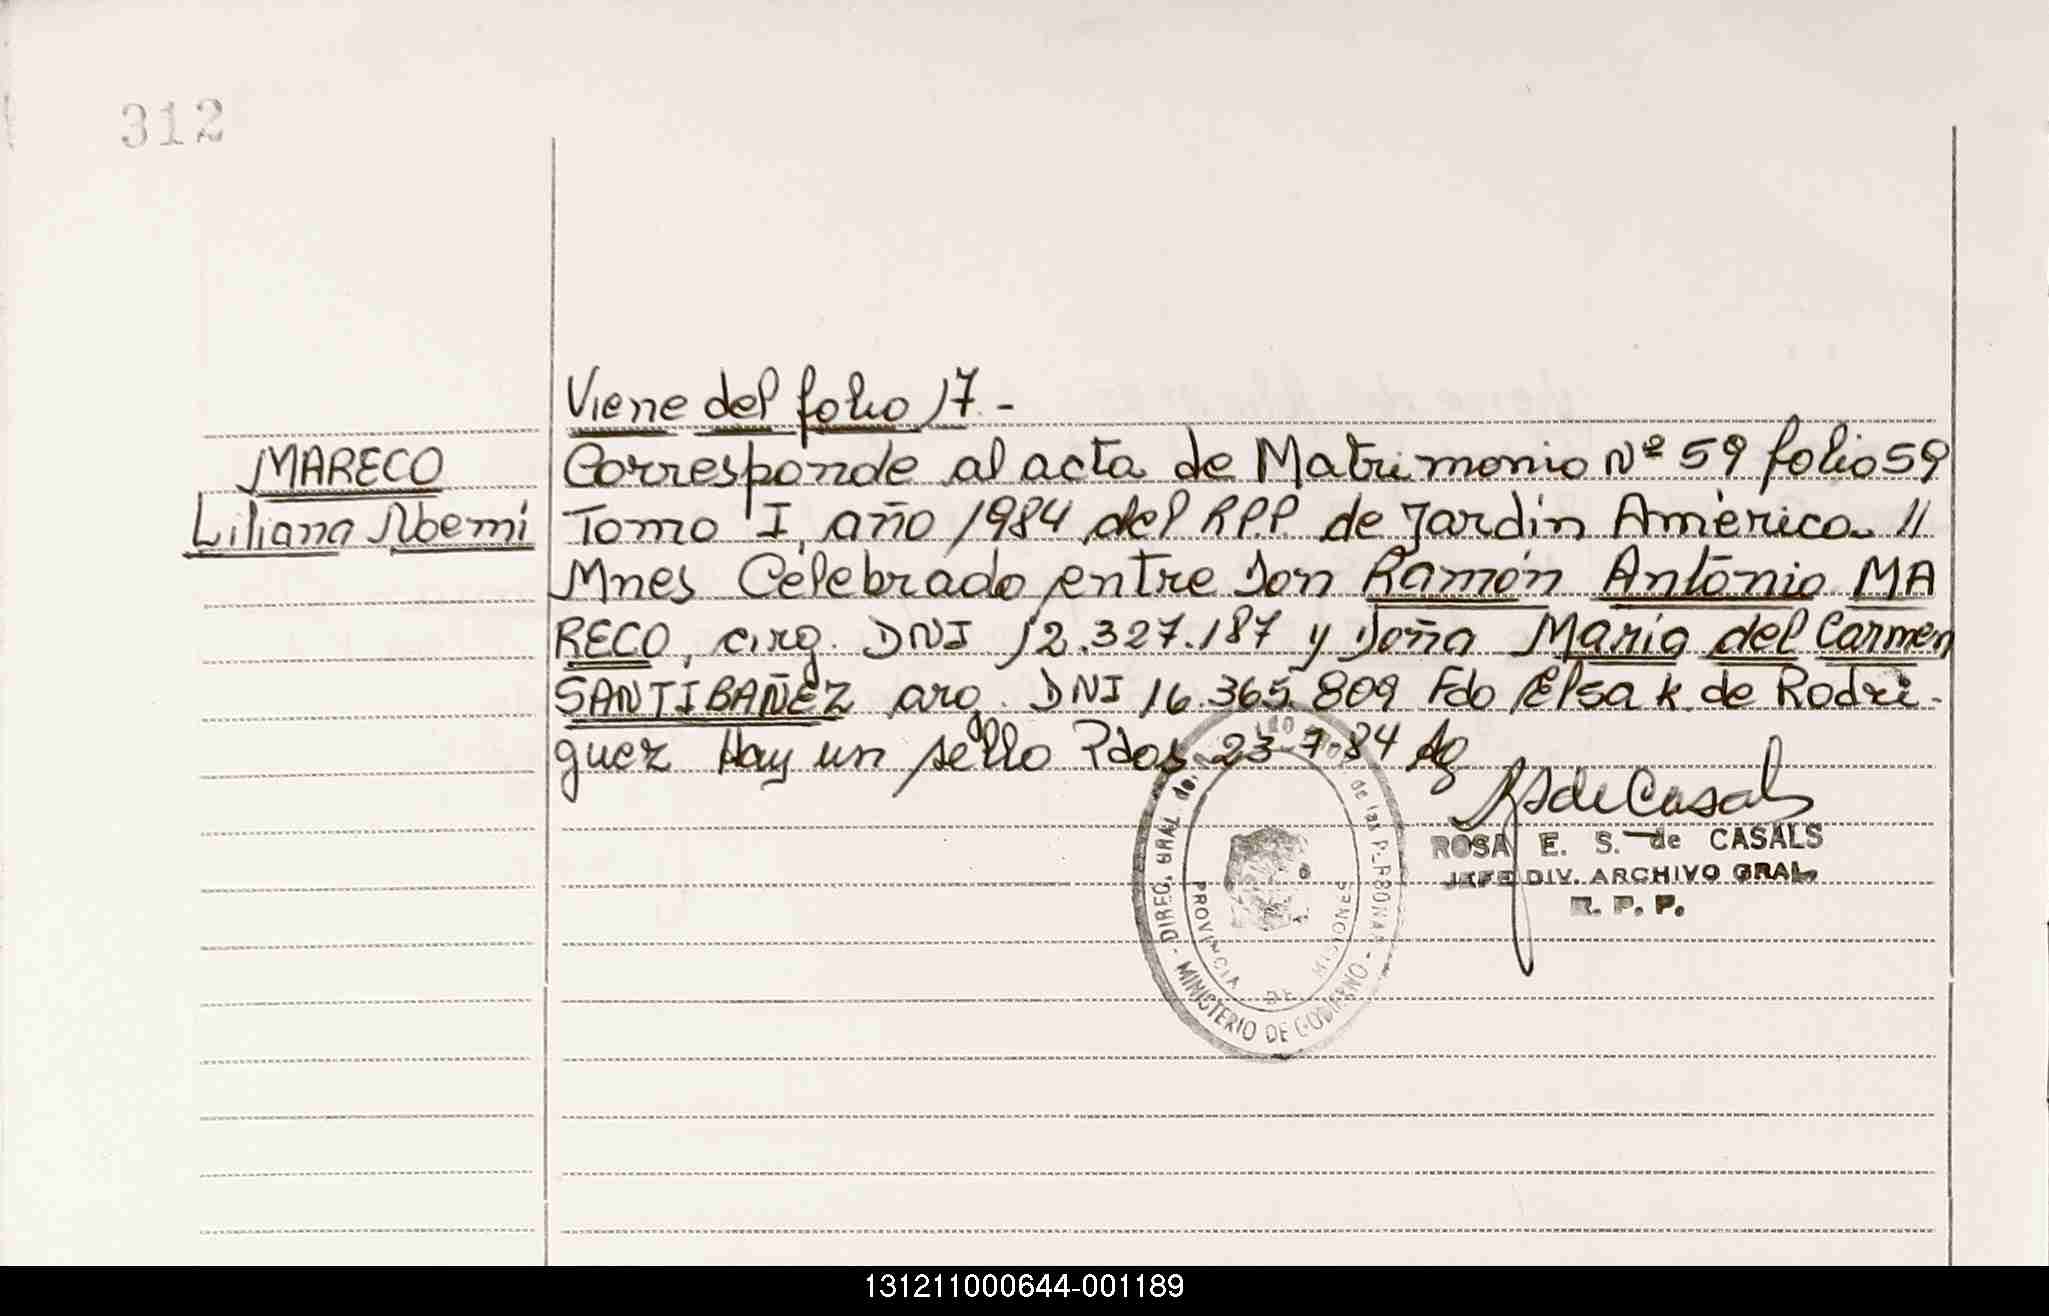 312
Viene del folio 17.-
MARECO
Liliana Noemi
Corresponde al acta de Matrimonio Nº 59 folio 59
Tomo I, año 1984 del R.P.P. de Jardín América. //
Mnes Celebrado entre Don Ramón Antonio MA
RECO, arg. DNI 12.327.187 y Doña María del Carmen
SANTIBAÑEZ arg. DNI 16.365.809 Fdo Elsa K. de Rodri-
guez Hay un sello Pdas 23-7-84
ROSA E. S. de CASALS
JEFE DIV. ARCHIVO GRAL.
R. P. P.
DIREC. GRAL del de las PERSONAS
- MINISTERIO DE GOBIERNO -
PROVINCIA DE MISIONES
131211000644-001189